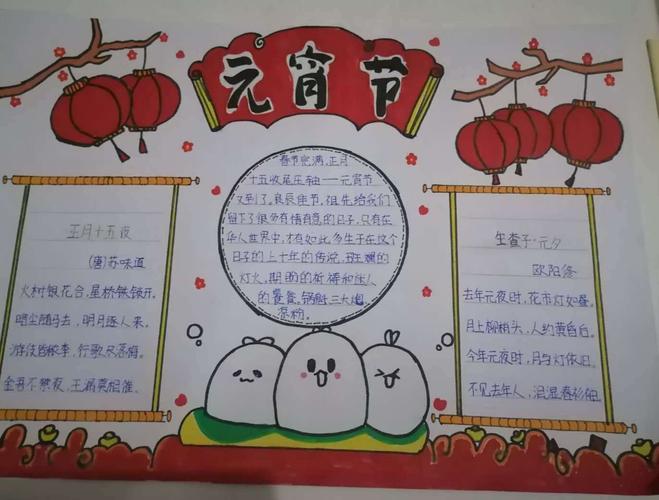 元宵节
正月十五夜
(唐)苏味道
火树银花合,星桥铁锁开。
暗尘随马去,明月逐人来。
游伎皆秾李,行歌尽落梅。
金吾不禁夜,玉漏莫相催。
春节完满,正月
十五收尾压轴——元宵节
又到了。良辰佳节,祖先给我们
留下了很多有情有意的日子,只有在
华人世界中,才有如此多生于在这个
日子的上千年的传说,斑斓的
灯火,期盼的祈祷和佳人
的
生查子·元夕
欧阳修
去年元夜时,花市灯如昼。
月上柳梢头,人约黄昏后。
今年元夜时,月与灯依旧。
不见去年人,泪湿春衫袖。